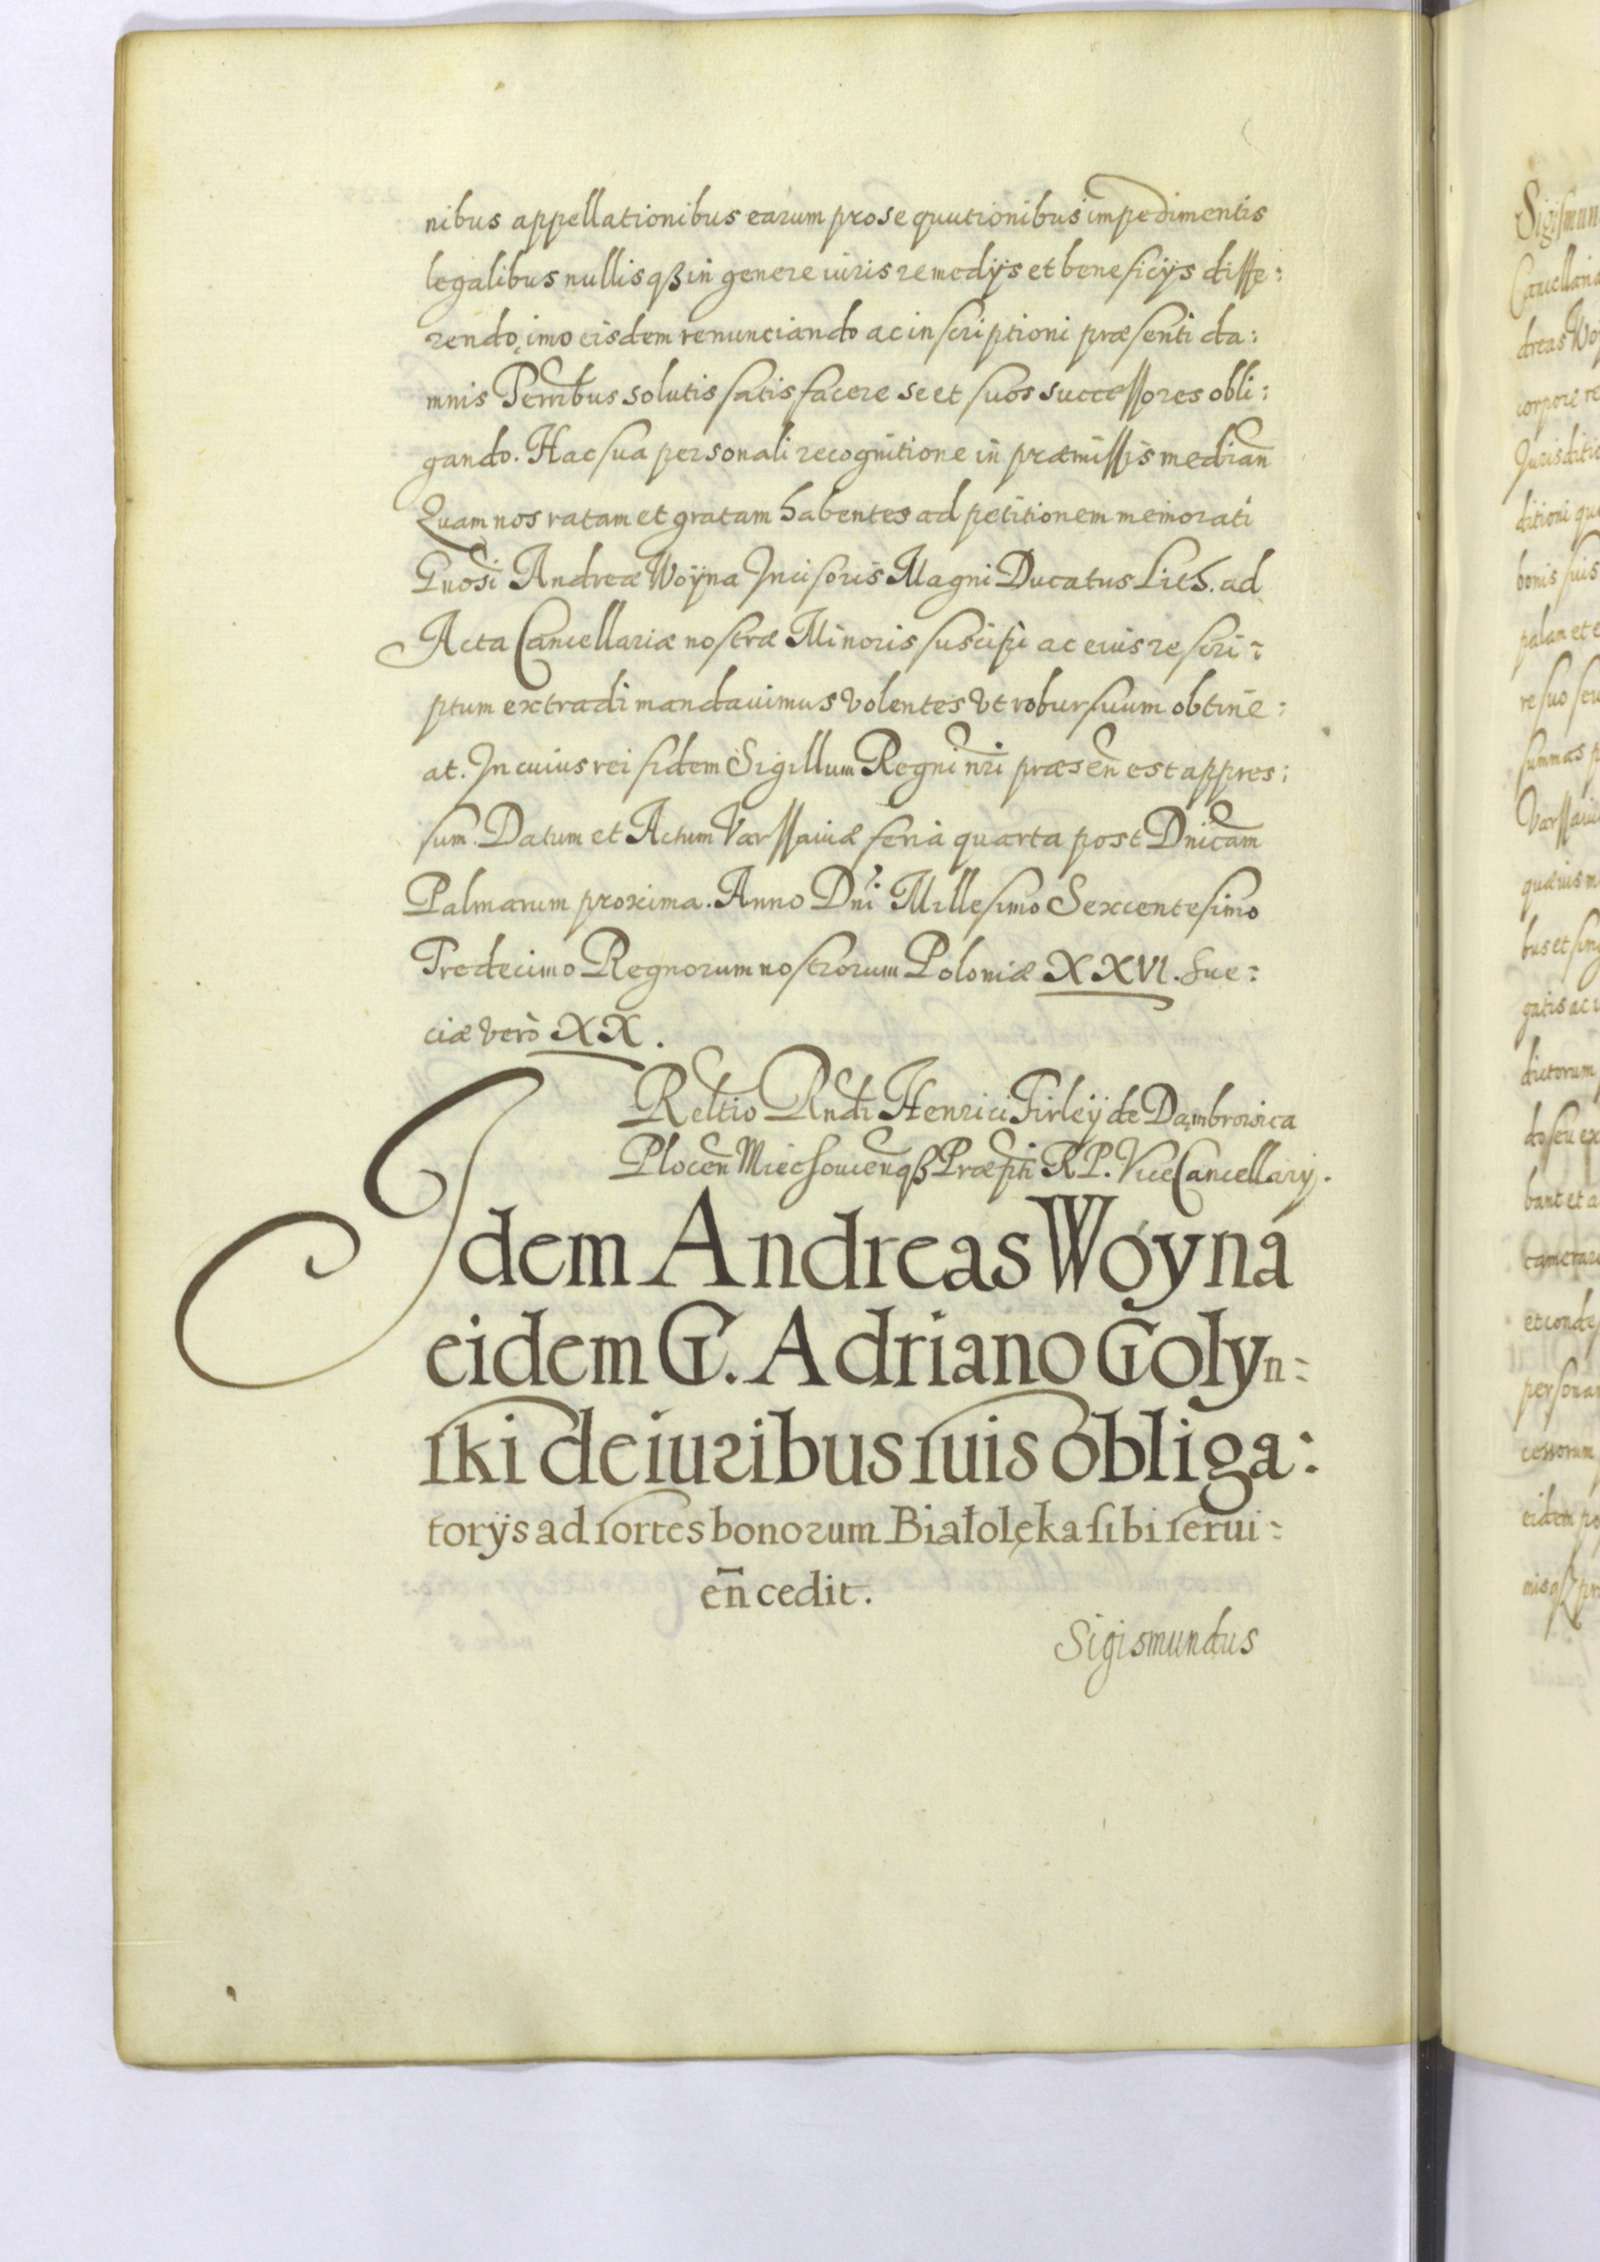 nibus appellationibus earum prosequutionibus impedimentis
legalibus nullisqꝫ in genere iuris remedijs et beneficijs diffe:
rendo, imo eisdem renunciando ac inscriptioni præsenti da:
mnis solutis satisfacere se et suos successores obli:
gando. Hac sua personali recognitione in præmissis median̄
Quam nos ratam et gratam habentes ad petitionem memorati
Gnosi Andreæ Woÿna Incisoris Magni Ducatus Lith. ad
Acta Cancellariæ nostræ Minoris suscipi ac eius rescri:
ptum extradi mandauimus volentes vt robur suum obtine:
at. In cuius rei fidem Sigillum Regni nri præsen̄ est appres:
sum. Datum et Actum Varssauiæ feria quarta post Dnicam
Palmarum proxima. Anno Dni Millesimo Sexcentesimo
Tredecimo Regnorum nostrorum Poloniæ XXVI. Sue:
ciæ verò XX.
Reltio Rndi Henrici Firleÿ de Dąmbrowica
Plocen̄ Miechouien̄qꝫ Præpti R.P. ViceCancellarij.
Idem Andreas Woyna
eidem G. Adriano Golyn:
ski de iuribus suis obliga:
torÿs ad sortes bonorum Białolęka sibi serui:
en̄ cedit.
Sigismundus
Sigismun
Cancellaria
dreas Woÿ
corpore re
Jurisditio
ditioni qu
bonis suis
palam et e
re suo seu
summas p
Varssauiæ
quæuis m
bus et sing
gatis ac i
dictorum
do seu ex
bant et a
camerar
et conde
personar
cessorum
eidem po
nisqꝫ pr